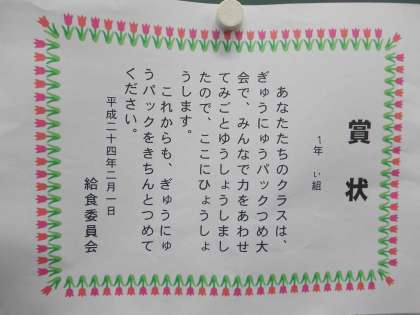 賞状
1年 い組
あなたたちのクラスは、
ぎゅうにゅうパックつめ大
会で、みんなで力をあわせ
てみごとゆうしょうしまし
たので、ここにひょうしょ
うします。
これからも、ぎゅうにゅ
うパックをきちんとつめて
ください。
平成二十四年二月一日
給食委員会